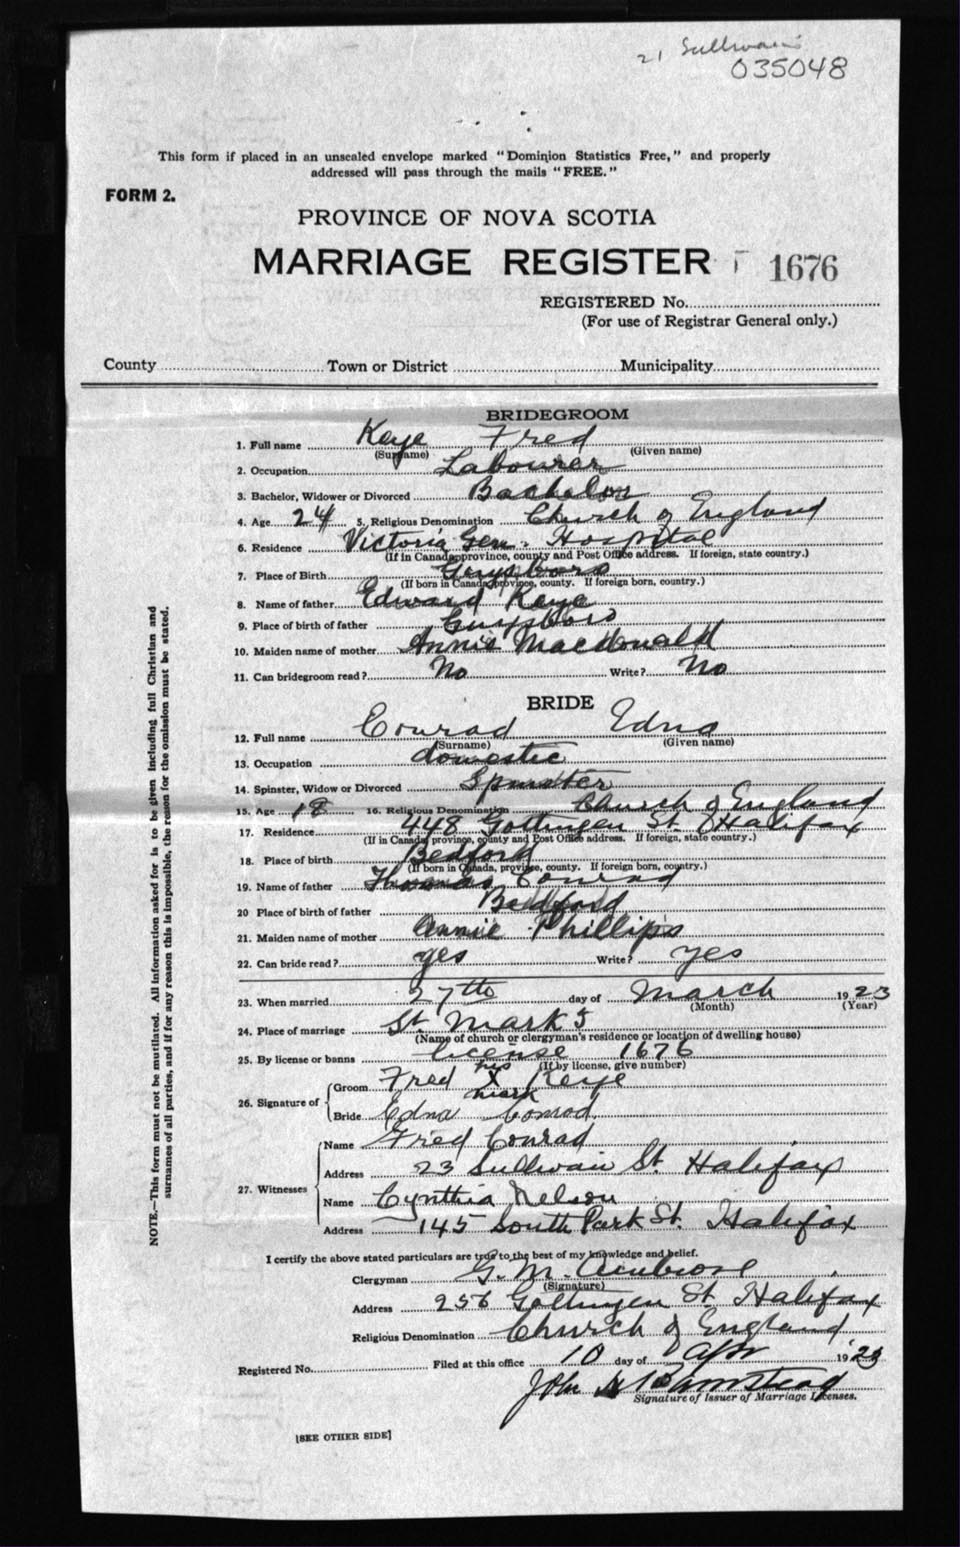 21 Sullivan's
035048
This form if placed in an unsealed envelope marked "Dominion Statistics Free," and properly
addressed will pass through the mails "FREE."
FORM 2.
PROVINCE OF NOVA SCOTIA
MARRIAGE REGISTER 1676
REGISTERED No.
(For use of Registrar General only.)
County Town or District Municipality
BRIDEGROOM
1. Full name Kaye Fred
(Surname) (Given name)
2. Occupation Labourer
3. Bachelor, Widower or Divorced Bachelor
4. Age 24 5. Religious Denomination Church of England
6. Residence Victoria Gen. Hospital
(If in Canada, province, county and Post Office address. If foreign, state country.)
7. Place of Birth Guysboro
(If born in Canada, province, county. If foreign born, country.)
8. Name of father Edward Kaye
9. Place of birth of father Guysboro
10. Maiden name of mother Annie Macdonald
11. Can bridegroom read? No Write? No
BRIDE
12. Full name Conrad Edna
(Surname) (Given name)
13. Occupation domestic
14. Spinster, Widow or Divorced Spinster
15. Age 18 16. Religious Denomination Church of England
17. Residence 448 Gottingen St. Halifax
(If in Canada, province, county and Post Office address. If foreign, state country.)
18. Place of birth Bedford
(If born in Canada, province, county. If foreign born, country.)
19. Name of father Thomas Conrad
20 Place of birth of father Bedford
21. Maiden name of mother Annie Phillips
22. Can bride read? yes Write? yes
23. When married 27th day of March 1923
(Month) (Year)
24. Place of marriage St. Mark's
(Name of church or clergyman's residence or location of dwelling house)
25. By license or banns license 1676
(If by license, give number)
26. Signature of Groom Fred his X mark Kaye
Bride Edna Conrad.
27. Witnesses Name Fred Conrad
Address 23 Sullivan St Halifax
Name Cynthia Nelson
Address 145 South Park St. Halifax
I certify the above stated particulars are true to the best of my knowledge and belief.
Clergyman G. M. Ambrose
(Signature)
Address 256 Gottingen St. Halifax
Religious Denomination Church of England
Registered No. Filed at this office 10 day of Apr 1923
John
Signature of Issuer of Marriage Licenses.
[SEE OTHER SIDE]
NOTE.—This form must not be mutilated. All information asked for is to be given including full Christian and
surnames of all parties, and if for any reason this is impossible, the reason for the omission must be stated.